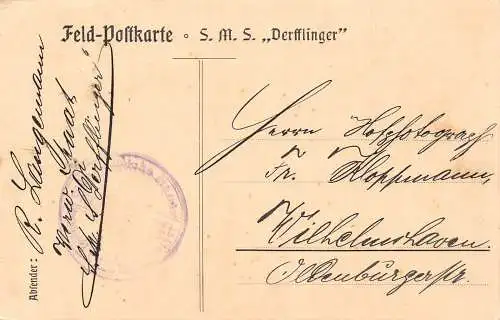 Feld-Postkarte ∘ S. M. S. „Derfflinger"
Absender:
R. Langemann
"Derfflinger"
Herrn Hofphotograph
Fr. Kloppmann,
Wilhelmshaven
Oldenburgerstr.